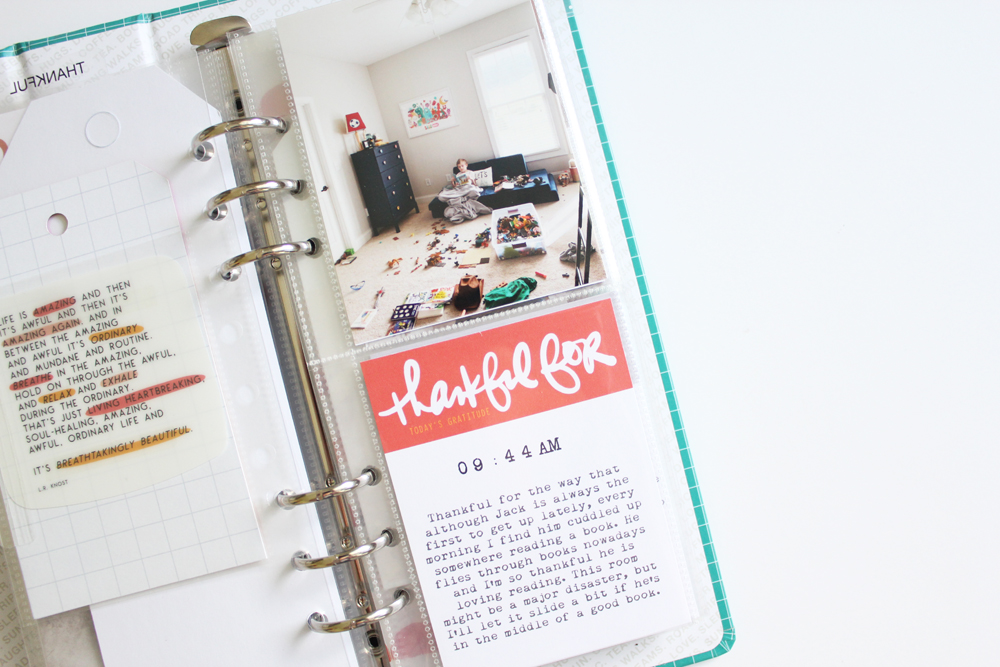 THANKFUL
LIFE IS AMAZING AND THEN
IT'S AWFUL AND THEN IT'S
AMAZING AGAIN. AND IN
BETWEEN THE AMAZING
AND AWFUL IT'S ORDINARY
AND MUNDANE AND ROUTINE.
BREATHE IN THE AMAZING,
HOLD ON THROUGH THE AWFUL,
AND RELAX AND EXHALE
DURING THE ORDINARY.
THAT'S JUST LIVING HEARTBREAKING,
SOUL-HEALING, AMAZING,
AWFUL, ORDINARY LIFE AND
IT'S BREATHTAKINGLY BEAUTIFUL.
L.R. KNOST
thankful for
TODAY'S GRATITUDE
09:44 AM
Thankful for the way that
although Jack is always the
first to get up lately, every
morning I find him cuddled up
somewhere reading a book. He
flies through books nowadays
and I'm so thankful he is
loving reading. This room
might be a major disaster, but
I'll let it slide a bit if he's
in the middle of a good book.